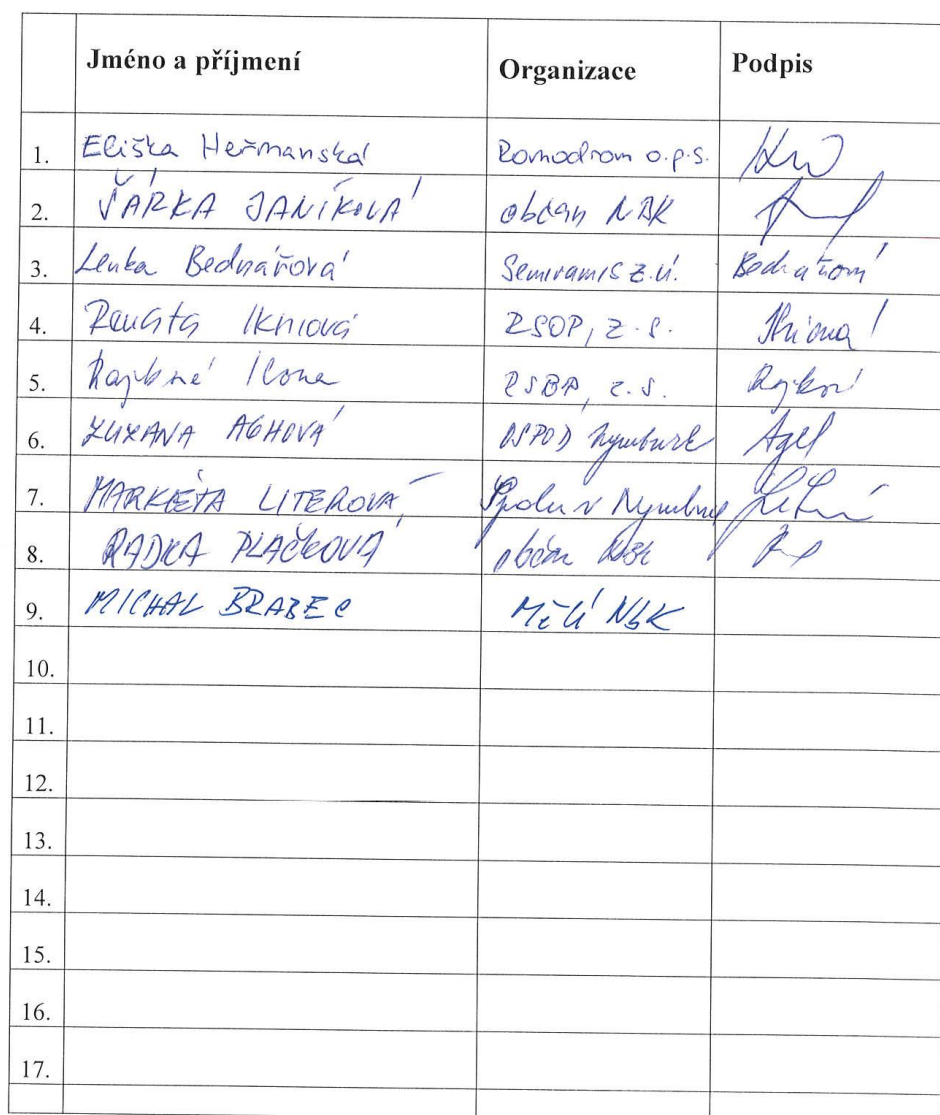 Jméno a příjmení Organizace Podpis
1. Eliška Heřmanská Romodrom o.p.s.
2. ŠÁRKA JANÍKOVÁ občan NBK
3. Lenka Bednářová Semiramis z.ú. Bednářová
4. Renata Ikniová RSOP, z.s.
5. Ilona z.s.
6. ZUZANA AGHOVÁ OSPOD Nymburk
7. MARKÉTA LITEROVÁ Spolu v Nymburce
8. RADKA PLAČKOVÁ občan NBK
9. MICHAL BRABEC MěÚ NbK
10.
11.
12.
13.
14.
15.
16.
17.